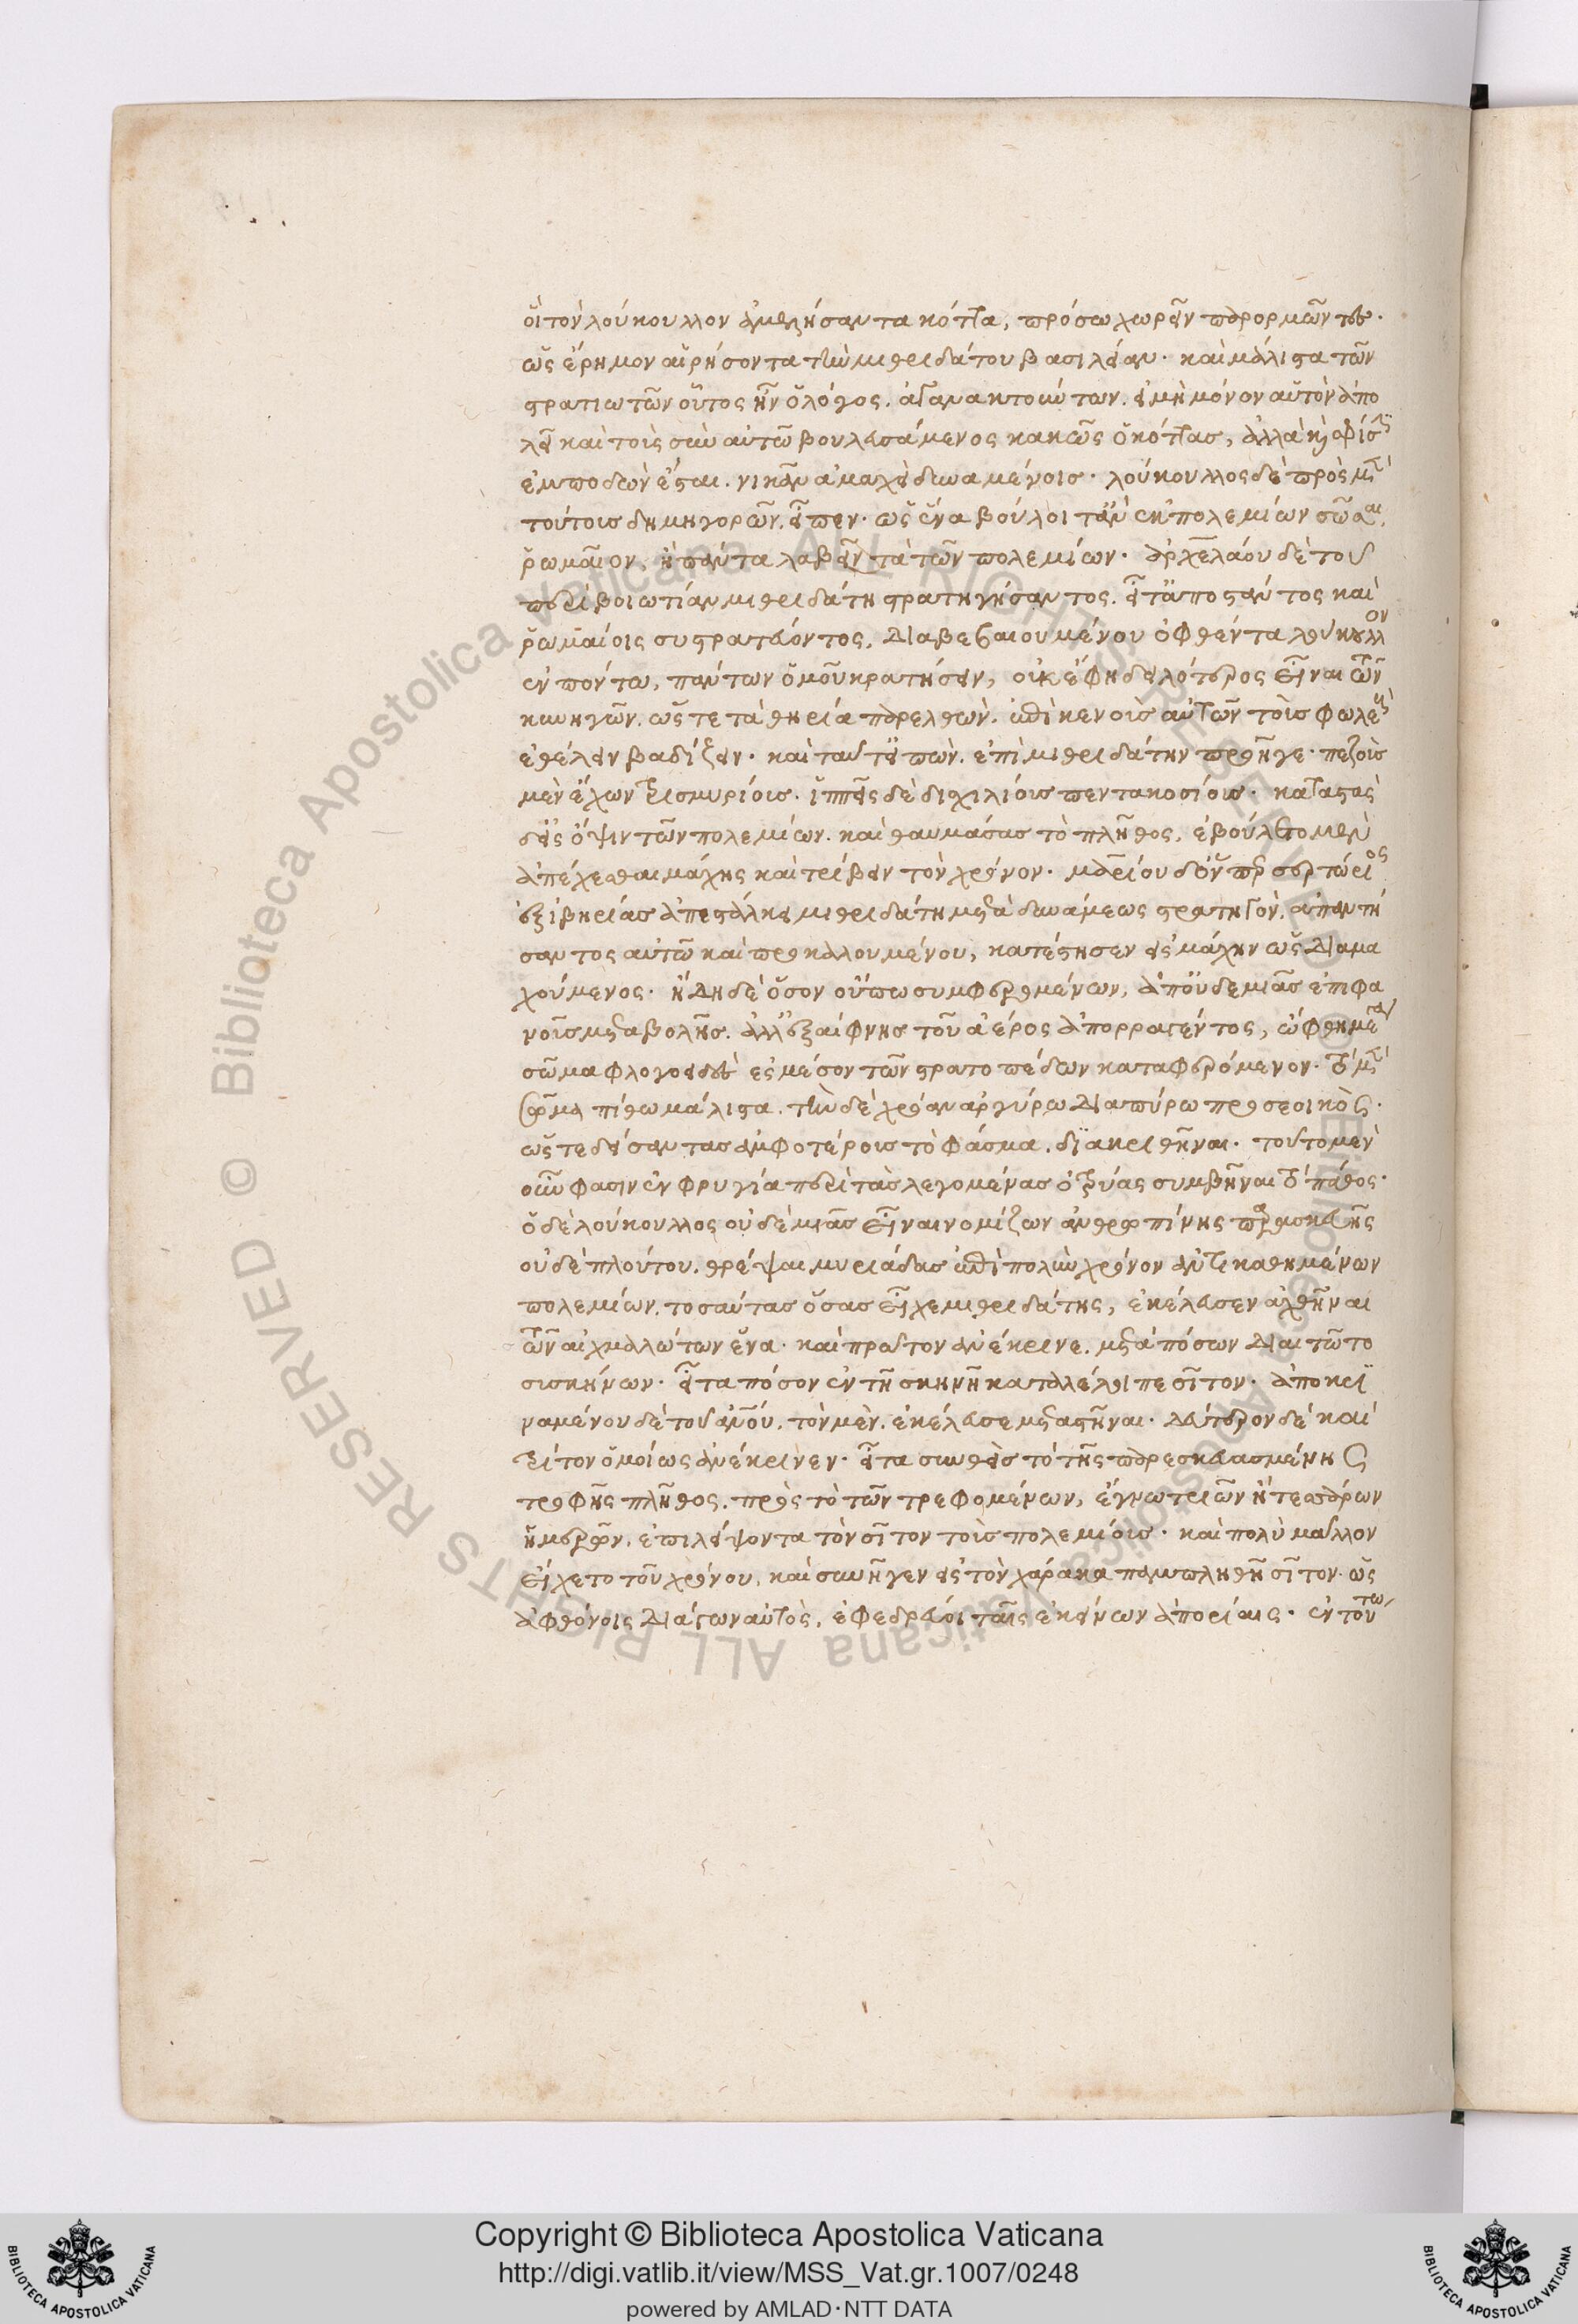 οἱ τὸν λούκουλλον ἀμελήσαντα κόττα, πρόσω χωρεῖν παρορμῶντες·
ὡς ἔρημον αἱρήσοντα τὴν μιθριδάτου βασιλείαν· καὶ μάλιστα τῶν
στρατιωτῶν οὗτος ἦν ὁ λόγος. ἀγανακτούντων. εἰ μὴ μόνον αὑτὸν ἀπο
λεῖ καὶ τοὺς σὺν αὐτῶ βουλευσάμενος κακῶς ὁ κόττας, ἀλλὰ καὶ σφίσιν
ἐμποδὼν ἔσται. νικᾶν ἀμαχεὶ δυναμένοις· λούκουλλος δὲ πρὸς μὲν
τούτους δημηγορῶν. εἶπεν· ὡς ἕνα βούλοιτ' ἂν ἐκ πολεμίων σῶσαι
ῥωμαῖον, ἢ πάντα λαβεῖν τὰ τῶν πολεμίων· ἀρχελάου δὲ τοῦ
περὶ βοιωτίαν μιθριδάτη στρατηγήσαντος. εἶτ' ἀποστάντος καὶ
ῥωμαίοις συστρατεύοντος. διαβεβαιουμένου ὀφθέντα λούκουλλον
ἐν πόντω, πάντων ὁμοῦ κρατήσειν, οὐκ ἔφη δειλότερος εἶναι τῶν
κυνηγῶν. ὥστε τὰ θηρία παρελθὼν. ἐπὶ κενοὺς αὐτῶν τοὺς φωλεοὺς
ἐθέλειν βαδίζειν· καὶ ταῦτ' εἰπὼν. ἐπὶ μιθριδάτην προῆγε· πεζοὺς
μὲν ἔχων τρισμυρίους. ἱππεῖς δὲ δισχιλίους πεντακοσίους· καταστὰς
δ' εἰς ὄψιν τῶν πολεμίων. καὶ θαυμάσας τὸ πλῆθος, ἐβούλετο μὲν
ἀπέχεσθαι μάχης καὶ τρίβειν τὸν χρόνον· μαρίου δ' ὃν σερτώριος
ἐξ ἰβηρίας ἀπεστάλκει μιθριδάτη μετὰ δυνάμεως στρατηγὸν. ἀπαντή
σαντος αὐτῶ καὶ προκαλουμένου, κατέστησεν εἰς μάχην ὡς διαμα
χούμενος· ἤδη δὲ ὅσον οὔπω συμφερομένων, ἀπ' οὐδεμιᾶς ἐπιφα
νοῦς μεταβολῆς. ἀλλ' ἐξαίφνης τοῦ ἀέρος ἀπορραγέντος, ὤφθη μέγα
σῶμα φλογοειδὲς εἰς μέσον τῶν στρατοπέδων καταφερόμενον· τὸ μὲν
σχῆμα πίθω μάλιστα. τὴν δὲ χρόαν ἀργύρω διαπύρω προσεοικὸς·
ὥστε δείσαντας ἀμφοτέρους τὸ φάσμα. διακριθῆναι· τοῦτο μὲν
οὖν φασιν ἐν φρυγία περὶ τὰς λεγομένας ὀτρύας συμβῆναι τὸ πάθος·
ὁ δὲ λούκουλλος οὐδὲ μιᾶς εἶναι νομίζων ἀνθρωπίνης παρασκευῆς
οὐδὲ πλούτου. θρέψαι μυριάδας ἐπὶ πολὺν χρόνον ἀντικαθημένων
πολεμίων. τοσαύτας ὅσας εἶχε μιθριδάτης, ἐκέλευσεν ἀχθῆναι
τῶν αἰχμαλώτων ἕνα· καὶ πρῶτον ἀνέκρινε. μετὰ πόσων διαιτῶτο
συσκήνων· εἶτα πόσον ἐν τῆ σκηνῆ καταλέλοιπε σῖτον· ἀποκρι
ναμένου δὲ τοῦ ἀνθρώπου. τὸν μὲν. ἐκέλευσε μεταστῆναι· δεύτερον δὲ καὶ
τρίτον ὁμοίως ἀνέκρινεν· εἶτα συνθεὶς τὸ τῆς παρεσκευασμένης
τροφῆς πλῆθος. πρὸς τὸ τῶν τρεφομένων, ἔγνω τριῶν ἢ τεσσάρων
ἡμερῶν. ἐπιλείψοντα τὸν σῖτον τοὺς πολεμίους· καὶ πολὺ μᾶλλον
εἴχετο τοῦ χρόνου, καὶ συνῆγεν εἰς τὸν χάρακα παμπληθῆ σῖτον· ὡς
ἀφθόνοις διάγων αὐτὸς, ἐφεδρεύοι ταῖς ἐκείνων ἀπορίαις· ἐν τούτω
Copyright © Biblioteca Apostolica Vaticana
http://digi.vatlib.it/view/MSS_Vat.gr.1007/0248
powered by AMLAD·NTT DATA